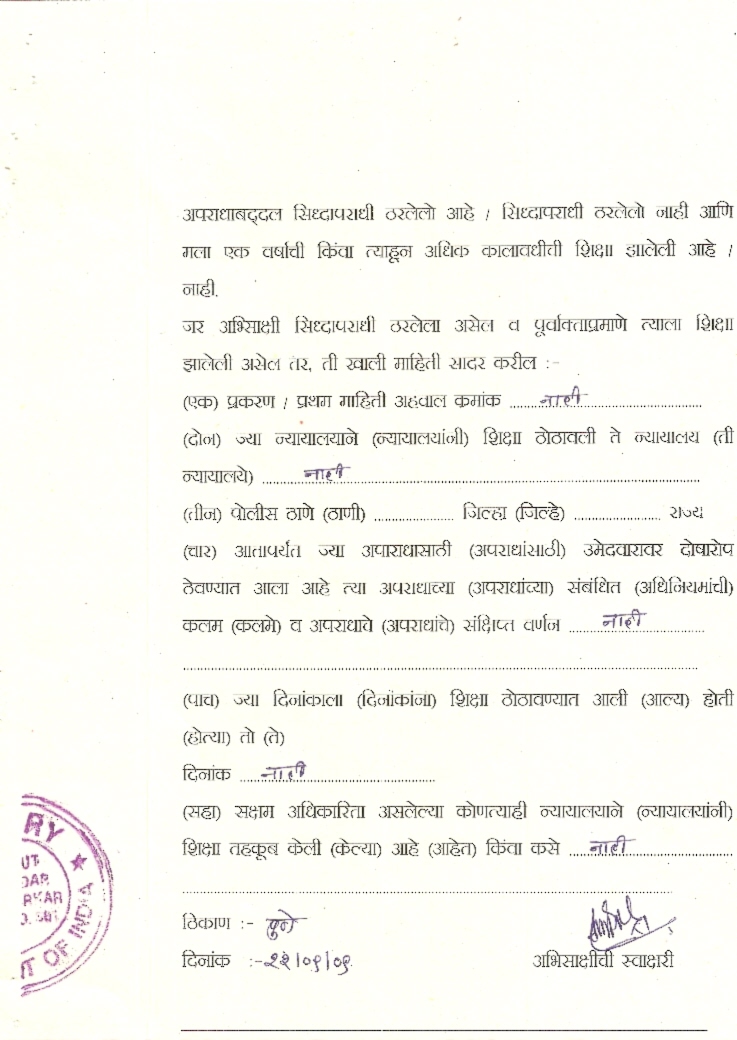 अपराधाबद्दल सिध्दापराधी ठरलेलो आहे / सिध्दापराधी ठरलेलो नाही आणि
मला एक वर्षाची किंवा त्याहून अधिक कालावधीती शिक्षा झालेली आहे /
नाही.
जर अभिसाक्षी सिध्दापराधी ठरलेला असेल व पूर्वोक्ताप्रमाणे त्याला शिक्षा
झालेली असेल तर, ती खाली माहिती सादर करील :-
(एक) प्रकरण / प्रथम माहिती अहवाल कमांक .......नाही..........................
(दोन) ज्या न्यायालयाने (न्यायालयांनी) शिक्षा ठोठावली ते न्यायालय (ती
न्यायालये) ..........नाही..........................................................
(तीन) पोलीस ठाणे (ठाणी) .................. जिल्हा (जिल्हे) .................. राज्य
(चार) आतापर्यंत ज्या अपाराधासाठी (अपराधांसाठी) उमेदवारावर दोषारोप
ठेवण्यात आला आहे त्या अपराधाच्या (अपराधांच्या) संबंधित (अधिनियमांची)
कलम (कलमे) व अपराधाचे (अपराधांचे) संक्षिप्त वर्णन .......नाही.............
..................................................................................
(पाच) ज्या दिनांकाला (दिनांकांना) शिक्षा ठोठावण्यात आली (आल्या) होती
(होत्या) तो (ते)
दिनांक .....नाही............................
(सहा) सक्षम अधिकारिता असलेल्या कोणत्याही न्यायालयाने (न्यायालयांनी)
शिक्षा तहकूब केली (केल्या) आहे (आहेत) किंवा कसे .....नाही.................
..................................................................................
ठिकाण :- पुणे
दिनांक :-२२/०९/०९
अभिसाक्षीची स्वाक्षरी
RY
OF INDIA